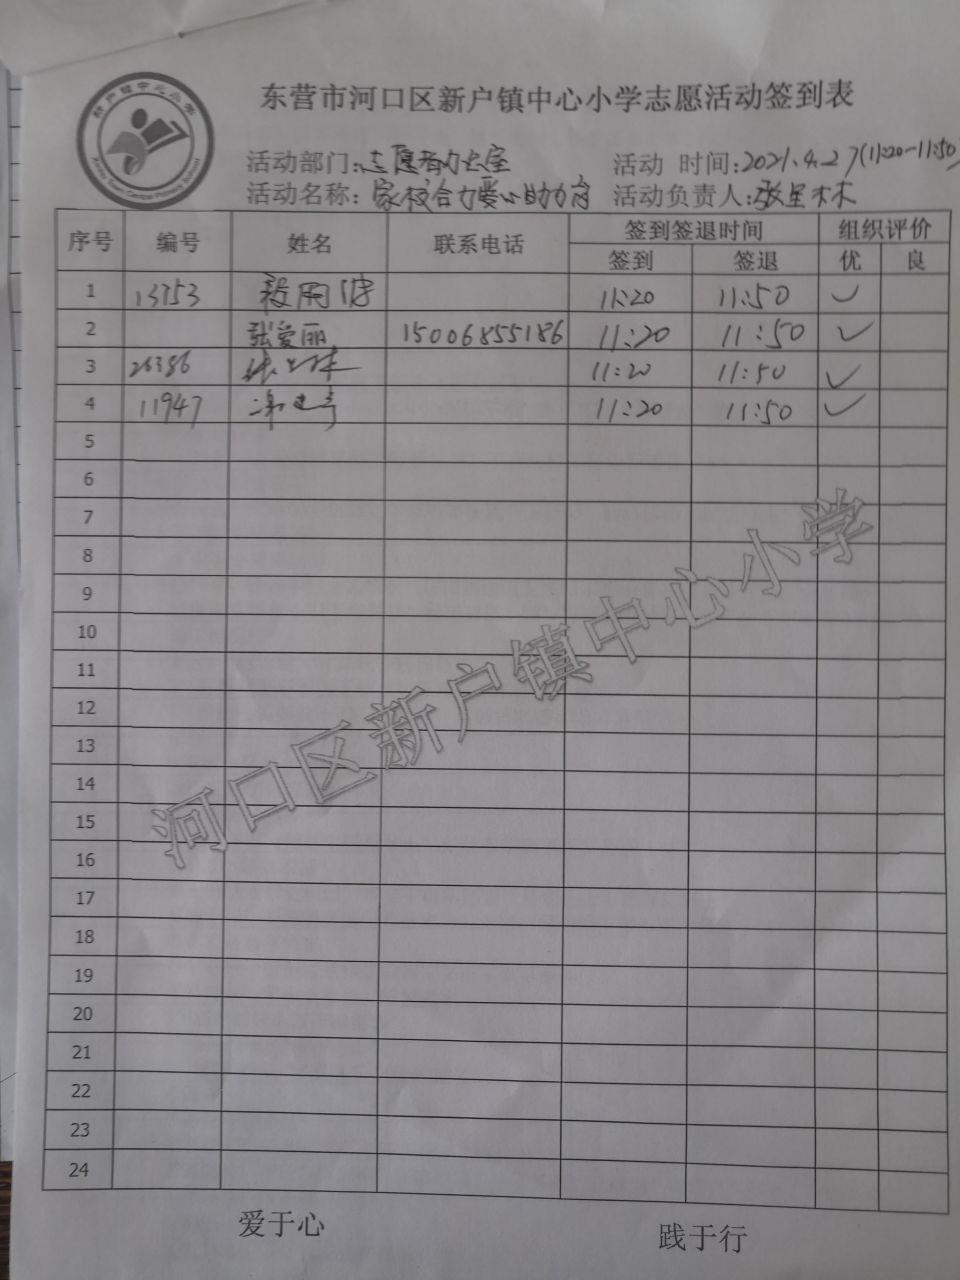 东营市河口区新户镇中心小学志愿活动签到表
活动部门:志愿者办公室 活动 时间:2021.4.27(11:20-11:50)
活动名称: 家校合力爱心助力 活动负责人:张
序号 编号 姓名 联系电话 签到签退时间 组织评价
签到 签退 优 良
1 13753 11:20 11:50 ✓
2 张爱丽 15006855186 11:20 11:50 ✓
3 26386 11:20 11:50 ✓
4 11947 11:20 11:50 ✓
5
6
7
8
9
10
11
12
13
14
15
16
17
18
19
20
21
22
23
24
河口区新户镇中心小学
爱于心 践于行